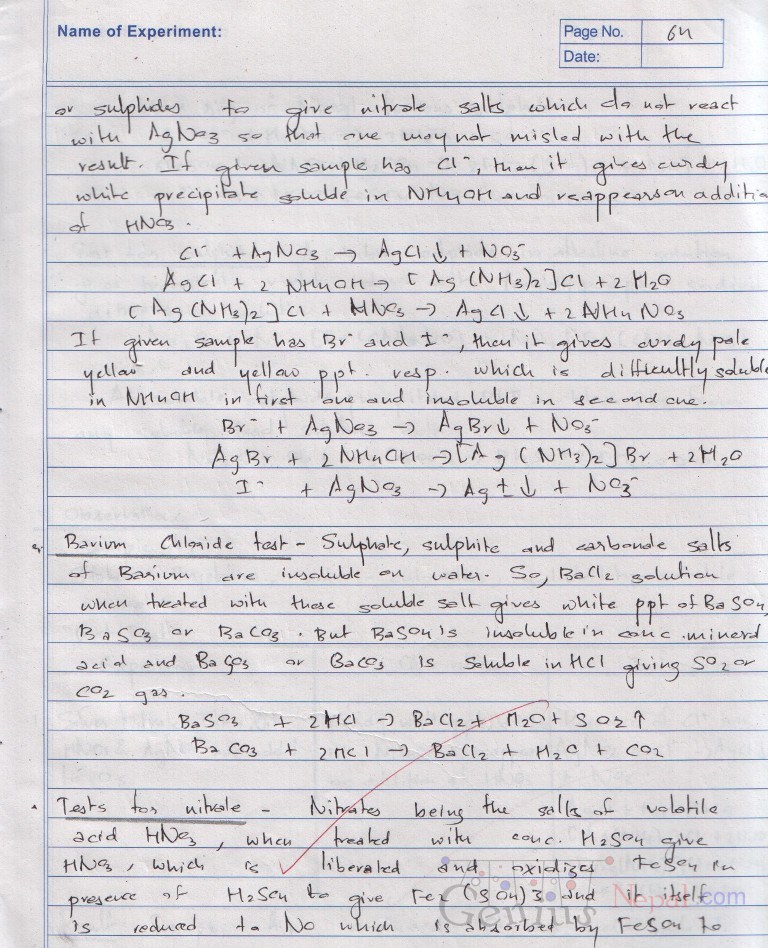 Name of Experiment:
Page No. 64
Date:
or sulphides to give nitrate salts which do not react
with AgNO3 so that one may not misled with the
result. If given sample has Cl⁻, then it gives curdy
white precipitate soluble in NH4OH and reappears on additi
of HNO3.
Cl⁻ + AgNO3 → AgCl↓ + NO3⁻
AgCl + 2 NH4OH → [Ag(NH3)2]Cl + 2H2O
[Ag(NH3)2]Cl + HNO3 → AgCl↓ + 2NH4NO3
If given sample has Br⁻ and I⁻, then it gives curdy pale
yellow and yellow ppt. resp. which is difficultly soluble
in NH4OH in first one and insoluble in second one.
Br⁻ + AgNO3 → AgBr↓ + NO3⁻
AgBr + 2NH4OH → [Ag(NH3)2]Br + 2H2O
I⁻ + AgNO3 → AgI↓ + NO3⁻
Barium Chloride test - Sulphate, sulphite and carbonate salts
of Barium are insoluble on water. So, BaCl2 solution
when treated with those soluble salt gives white ppt of BaSO4,
BaSO3 or BaCO3. But BaSO4 is insoluble in conc. mineral
acid and BaSO3 or BaCO3 is soluble in HCl giving SO2 or
CO2 gas.
BaSO3 + 2HCl → BaCl2 + H2O + SO2↑
BaCO3 + 2HCl → BaCl2 + H2O + CO2
Tests for nitrate - Nitrates being the salts of volatile
acid HNO3, when treated with conc. H2SO4 give
HNO3, which is liberated and oxidizes FeSO4 in
presence of H2SO4 to give Fe2(SO4)3 and it itself
is reduced to NO which is absorbed by FeSO4 to
Genius Nepal.com